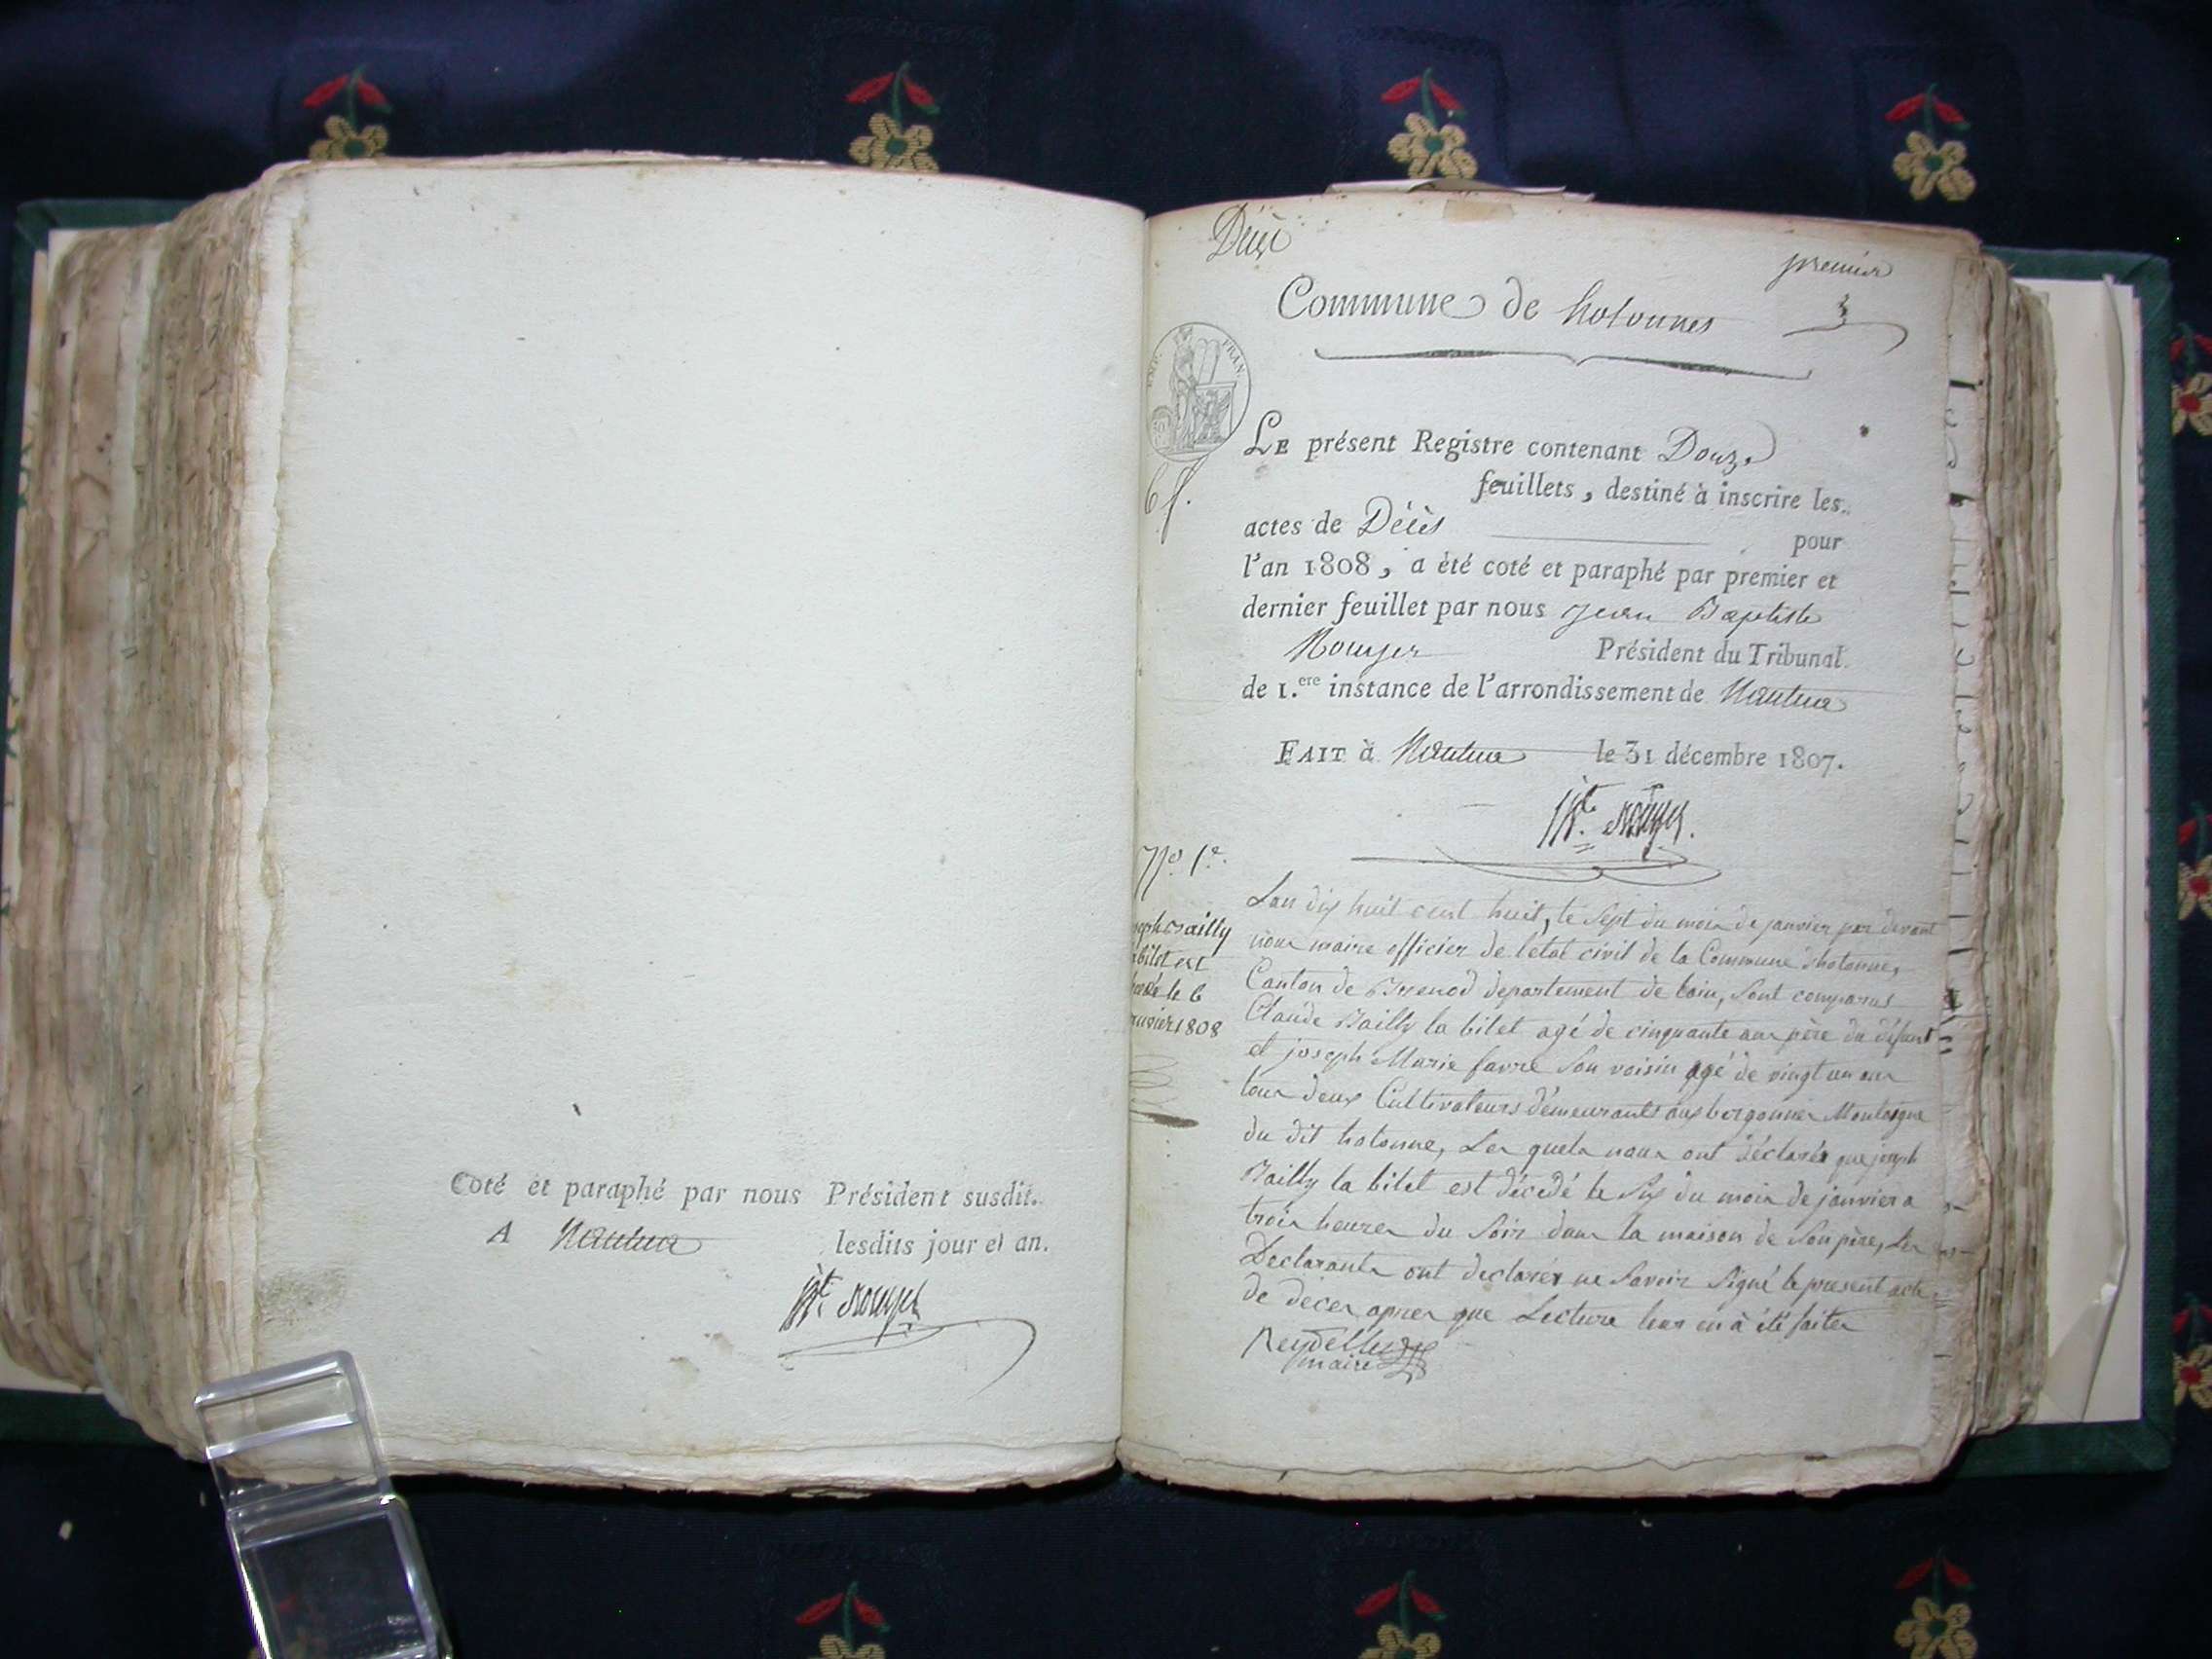 Coté et paraphé par nous Président susdit.
A Nantua lesdits jour et an.
Décès
premier
Commune de hotonnes
EMP. FRAN.
LE présent Registre contenant Douze
feuillets, destiné à inscrire les
actes de Décès pour
l'an 1808, a été coté et paraphé par premier et
dernier feuillet par nous Jean Baptiste
Président du Tribunal
de 1.ere instance de l'arrondissement de Nantua
FAIT à Nantua le 31 décembre 1807.
No. 1e.
Bailly
bilet est
le 6
1808
L'an dix huit cent huit, le sept du mois de janvier par devant
nous maire officier de l'etat civil de la Commune d'hotonne,
Canton de Brenod departement de lain, sont comparus
Claude Bailly la bilet agé de cinquante ans père du défunt
et joseph Marie favre son voisin agé de vingt un ans
tous deux Cultivateurs demeurants aux bergonnes Montaigne
du dit hotonne, Les quels nous ont déclarés que joseph
Bailly la bilet est décedé le six du mois de janvier a
trois heures du soir dans la maison de son père, Les
Declarants ont declarés ne savoir signé le present acte
de deces apres que Lecture leur en à été faites
Reydellet
maire